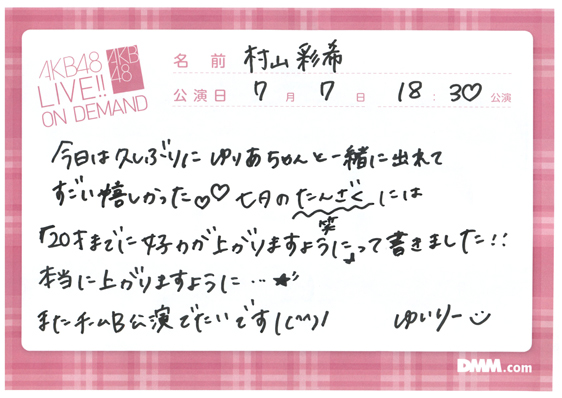 AKB48
LIVE!!
ON DEMAND
AKB
48
名前 村山彩希
公演日 7月7日 18:30公演
今日は久しぶりに ゆりあちゃんと一緒に出れて
すごい嬉しかった♡♡ 七月のたんざくには
「20才までに女子力が上がりますように笑」って書きました!!
本当に上がりますように…★
またチームB公演でたいです!(^^)!
ゆいりー
DMM.com